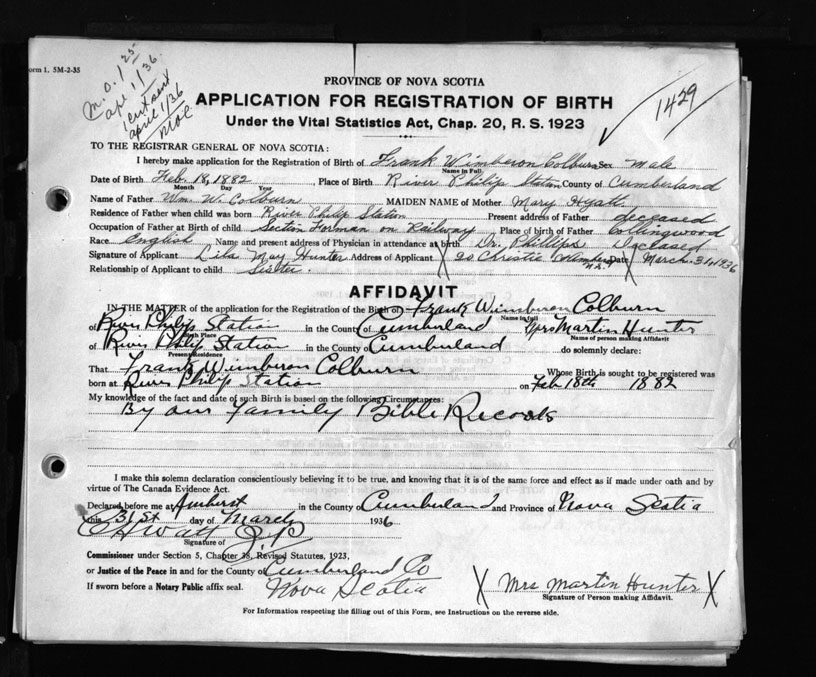 orm 1. 5M-2-35
M.O. 1.25
apl 1/36.
april 1/36
1429
PROVINCE OF NOVA SCOTIA
APPLICATION FOR REGISTRATION OF BIRTH
Under the Vital Statistics Act, Chap. 20, R. S. 1923
TO THE REGISTRAR GENERAL OF NOVA SCOTIA:
I hereby make application for the Registration of Birth of Frank Wimberon Colburn Sex Male
Name in Full
Date of Birth Feb. 18, 1882 Place of Birth River Philip Station County of Cumberland
Month Day Year
Name of Father Wm. W. Colburn MAIDEN NAME of Mother Mary Hyatt
Residence of Father when child was born River Philip Station Present address of Father deceased
Occupation of Father at Birth of child Section Forman on Railway Place of birth of Father Collingwood
Race English Name and present address of Physician in attendance at birth Dr. Phillips Deceased
Signature of Applicant Lila May Hunter Address of Applicant X 20 Christie Date March. 31, 1936
Relationship of Applicant to child Sister.
AFFIDAVIT
IN THE MATTER of the application for the Registration of the Birth of Frank Wimberon Colburn
Name in full
of River Philip Station in the County of Cumberland Mrs Martin Hunter
Birth Place Name of person making Affidavit
of River Philip Station in the County of Cumberland do solemnly declare:
Present Residence
That Frank Wimberon Colburn Whose Birth is sought to be registered was
born at River Philip Station on Feb 18th 1882
My knowledge of the fact and date of such Birth is based on the following Circumstances:
By our Family Bible Records
I make this solemn declaration conscientiously believing it to be true, and knowing that it is of the same force and effect as if made under oath and by
virtue of The Canada Evidence Act.
Declared before me at Amherst in the County of Cumberland and Province of Nova Scotia
this 31st day of March 1936
Signature of
Commissioner under Section 5, Chapter 38, Revised Statutes, 1923,
or Justice of the Peace in and for the County of Cumberland Co
If sworn before a Notary Public affix seal. Nova Scotia
X Mrs Martin Hunter X
Signature of Person making Affidavit.
For Information respecting the filling out of this Form, see Instructions on the reverse side.